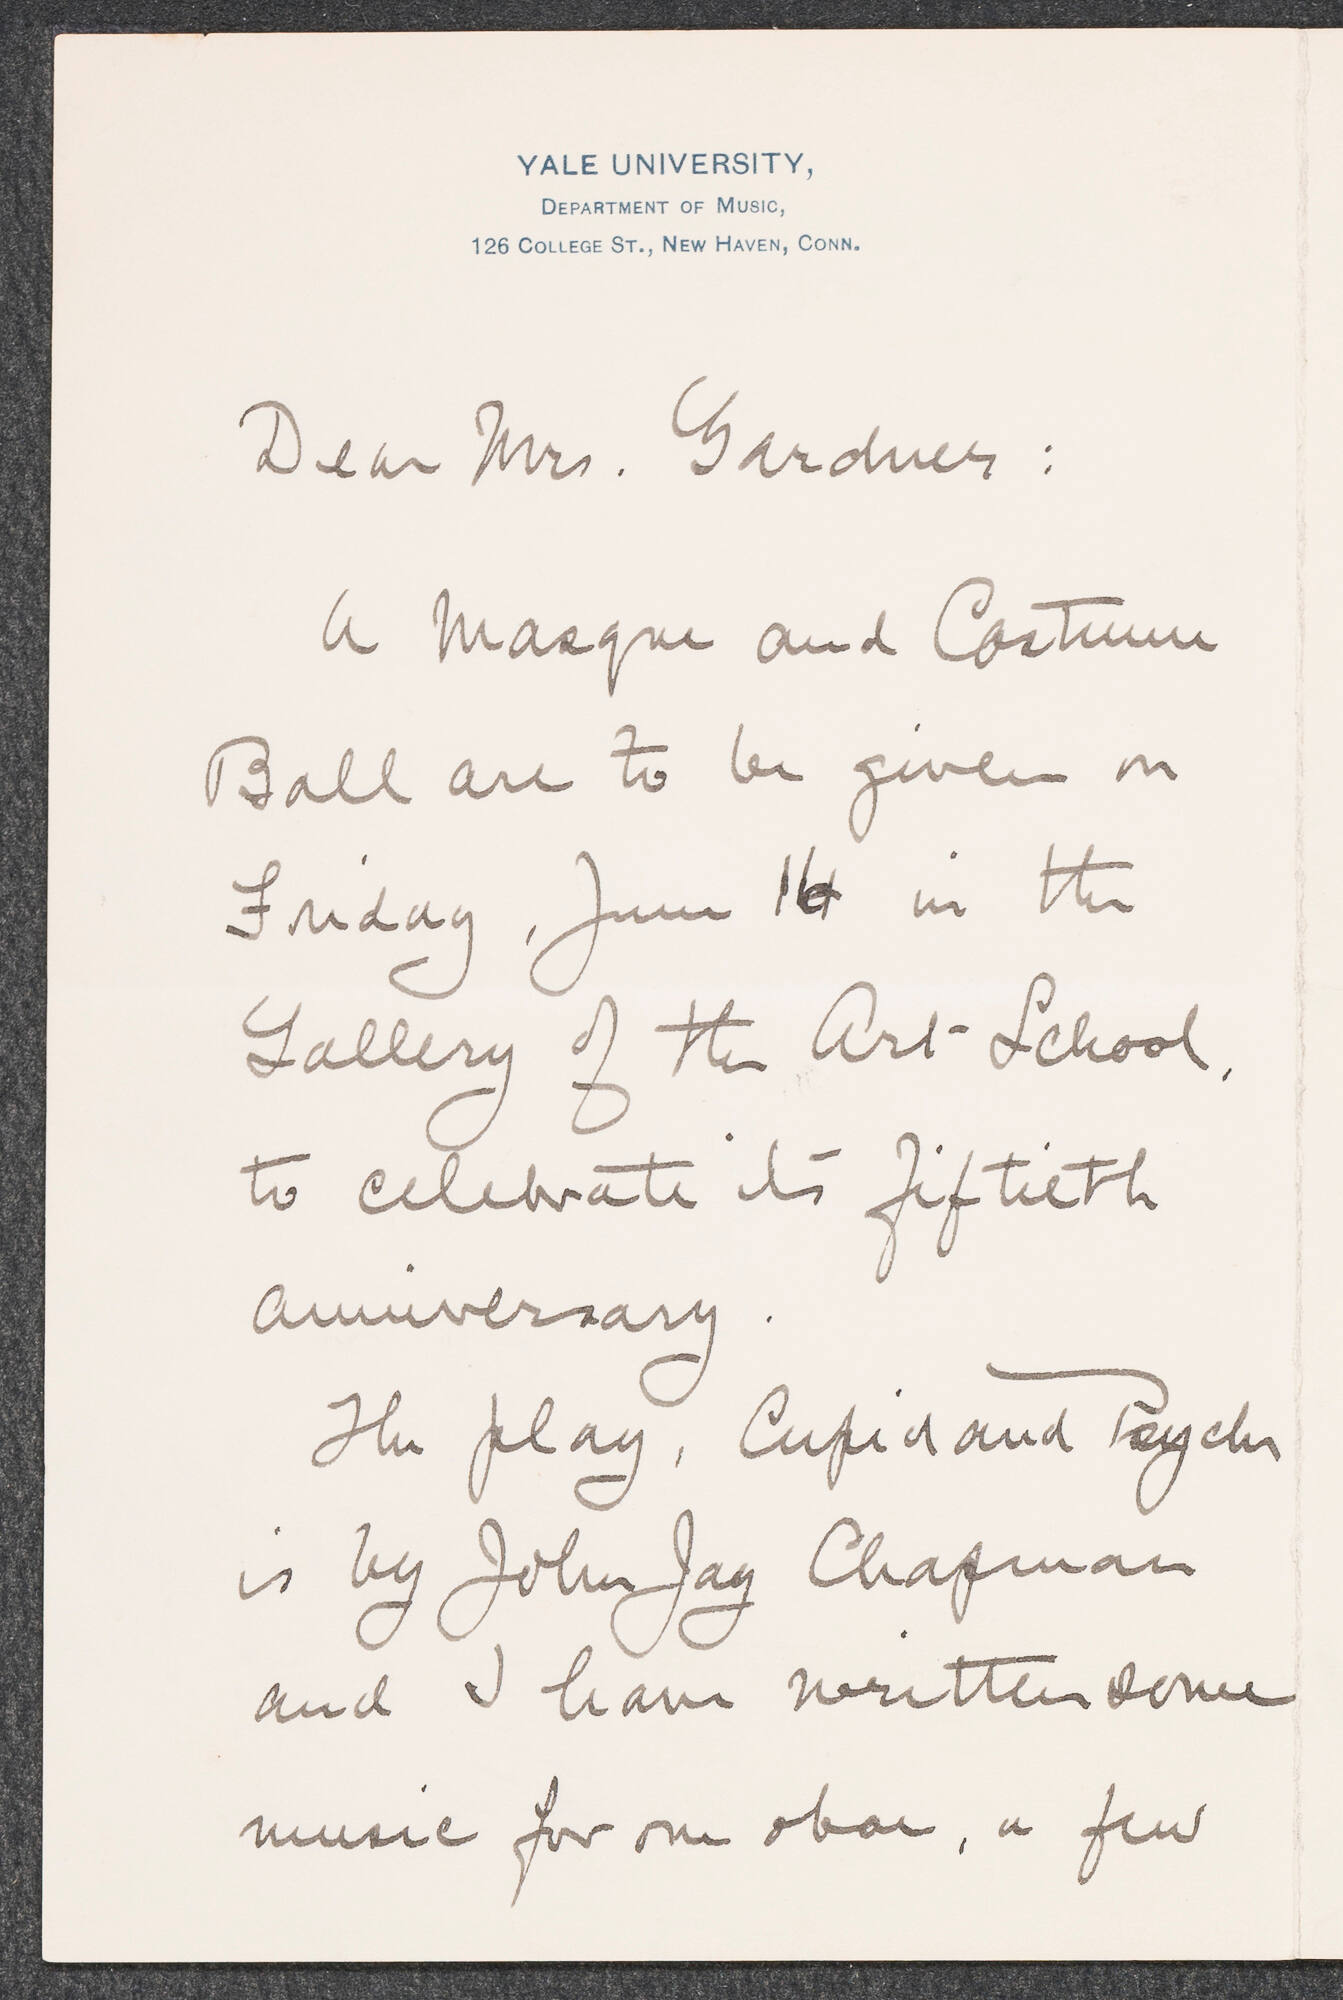 YALE UNIVERSITY,
DEPARTMENT OF MUSIC,
126 COLLEGE ST., NEW HAVEN, CONN.
Dear Mrs. Gardner:
A Masque and Costume
Ball are to be given on
Friday, June 16 in the
Gallery of the Art School,
to celebrate its fiftieth
anniversary.
The play, Cupid and Psyche
is by John Jay Chapman
and I have written some
music for one oboe, a few